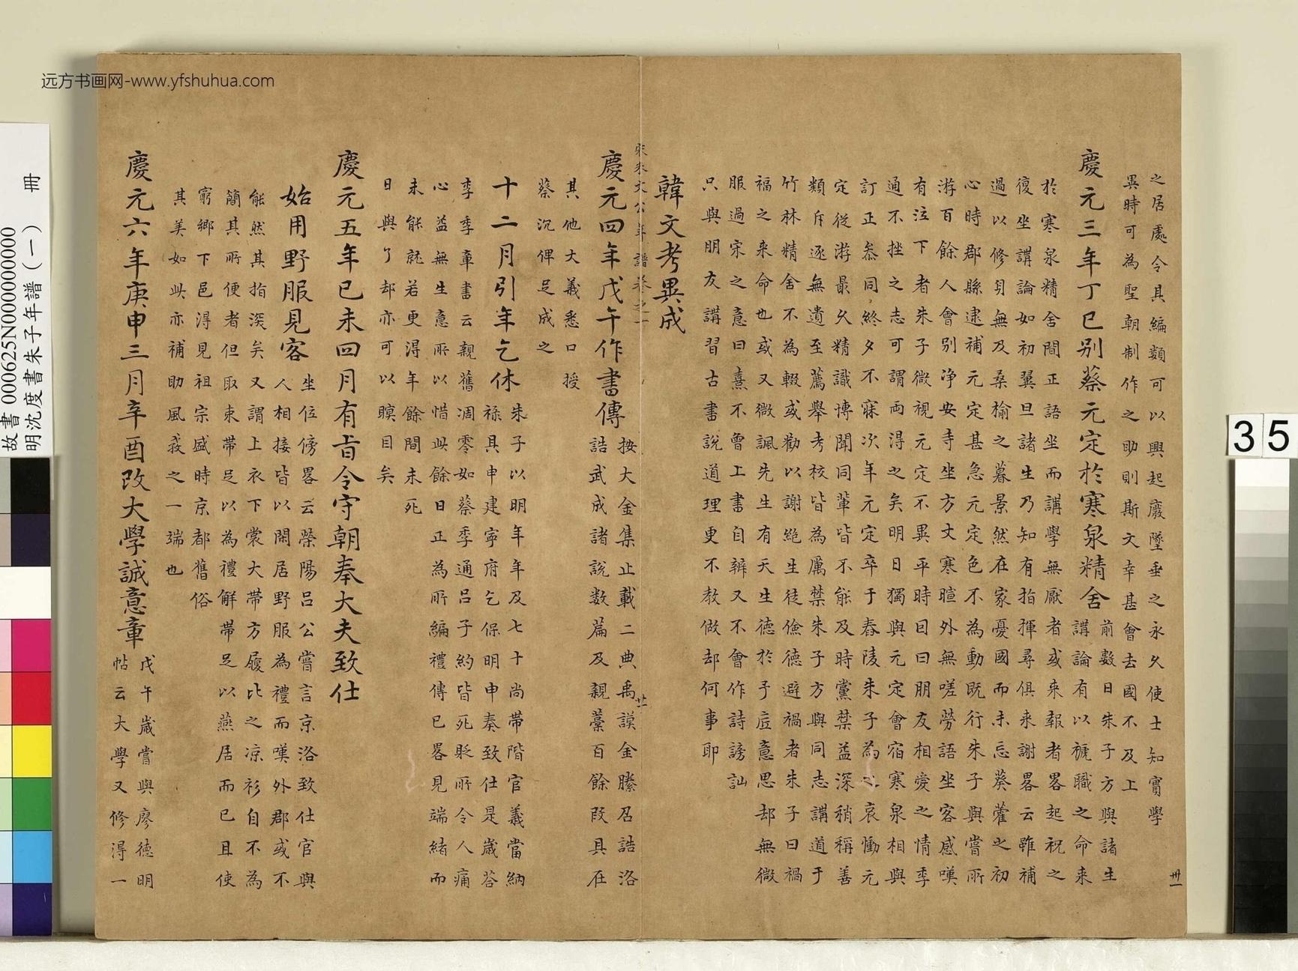 远方书画网-www.yfshuhua.com
之居處令其編類可以興起廢墜垂之永久使士知實學
異時可為聖朝制作之助則斯文幸甚會去國不及上
慶元三年丁巳別蔡元定於寒泉精舍前數日朱子方與諸生講論有以褫職之命來
於寒泉精舍間正語坐而講學無厭者或來報者畧起視之
復坐謂論如初翼旦諸生乃知有指揮尋俱來謝畧云雖補
過以修身無及桑榆之暮景然在家憂國而未忘葵藿之初
心時郡縣逮補元定甚急元定色不為動既行朱子與嘗所
游百餘人會別淨安寺坐方丈寒暄外無嗟勞語坐客感嘆
有泣下者朱子微視元定不異平時曰曰朋友相愛之情季
通不挫之志可謂兩得之矣明日獨與元定會宿寒泉相與
訂正叅同終夕不寐次年元定卒于舂陵朱子為之哀慟元
定從游最久精識博聞同輩皆不能及時黨禁益深稍稱善
類斥逐無遺至薦舉考校皆為厲禁朱子方與同志講道于
竹林精舍不為輟或勸以謝絕生徒儉德避禍者朱子曰禍
福之來命也或又微諷先生有天生德於予底意思却無微
服過宋之意曰熹不曾上書自辨又不曾作詩謗訕
只與朋友講習古書說道理更不教做却何事耶
韓文考異成
宋朱文公年譜卷之一
慶元四年戊午作書傳按大金集止載二典禹謨金縢召誥洛誥武成諸說數篇及親藁百餘段具在
其他大義悉口授
蔡沉俾足成之
十二月引年乞休朱子以明年年及七十尚帶階官義當納祿具申建寧府乞保明申奏致仕是歲荅
李季章書云親舊凋零如蔡季通呂子約皆死貶所令人痛
心益無生意所以惜此餘日正為所編禮傳已畧見端緒而
未能就若更得年餘間未死
日與了却亦可以瞑目矣
慶元五年己未四月有旨令守朝奉大夫致仕
始用野服見客坐位傍畧云滎陽呂公嘗言京洛致仕官與人相接皆以閒居野服為禮而嘆外郡或不
能然其指深矣又謂上衣下裳大帶方履比之涼衫自不為
簡其所便者但取束帶足以為禮解帶足以燕居而已且使
窮鄉下邑得見祖宗盛時京都舊俗
其美如此亦補助風教之一端也
慶元六年庚申三月辛酉改大學誠意章戊午歲嘗與廖德明帖云大學又修得一
卅一
故書 000625N000000000
明沈度書朱子年譜(一) 冊
35